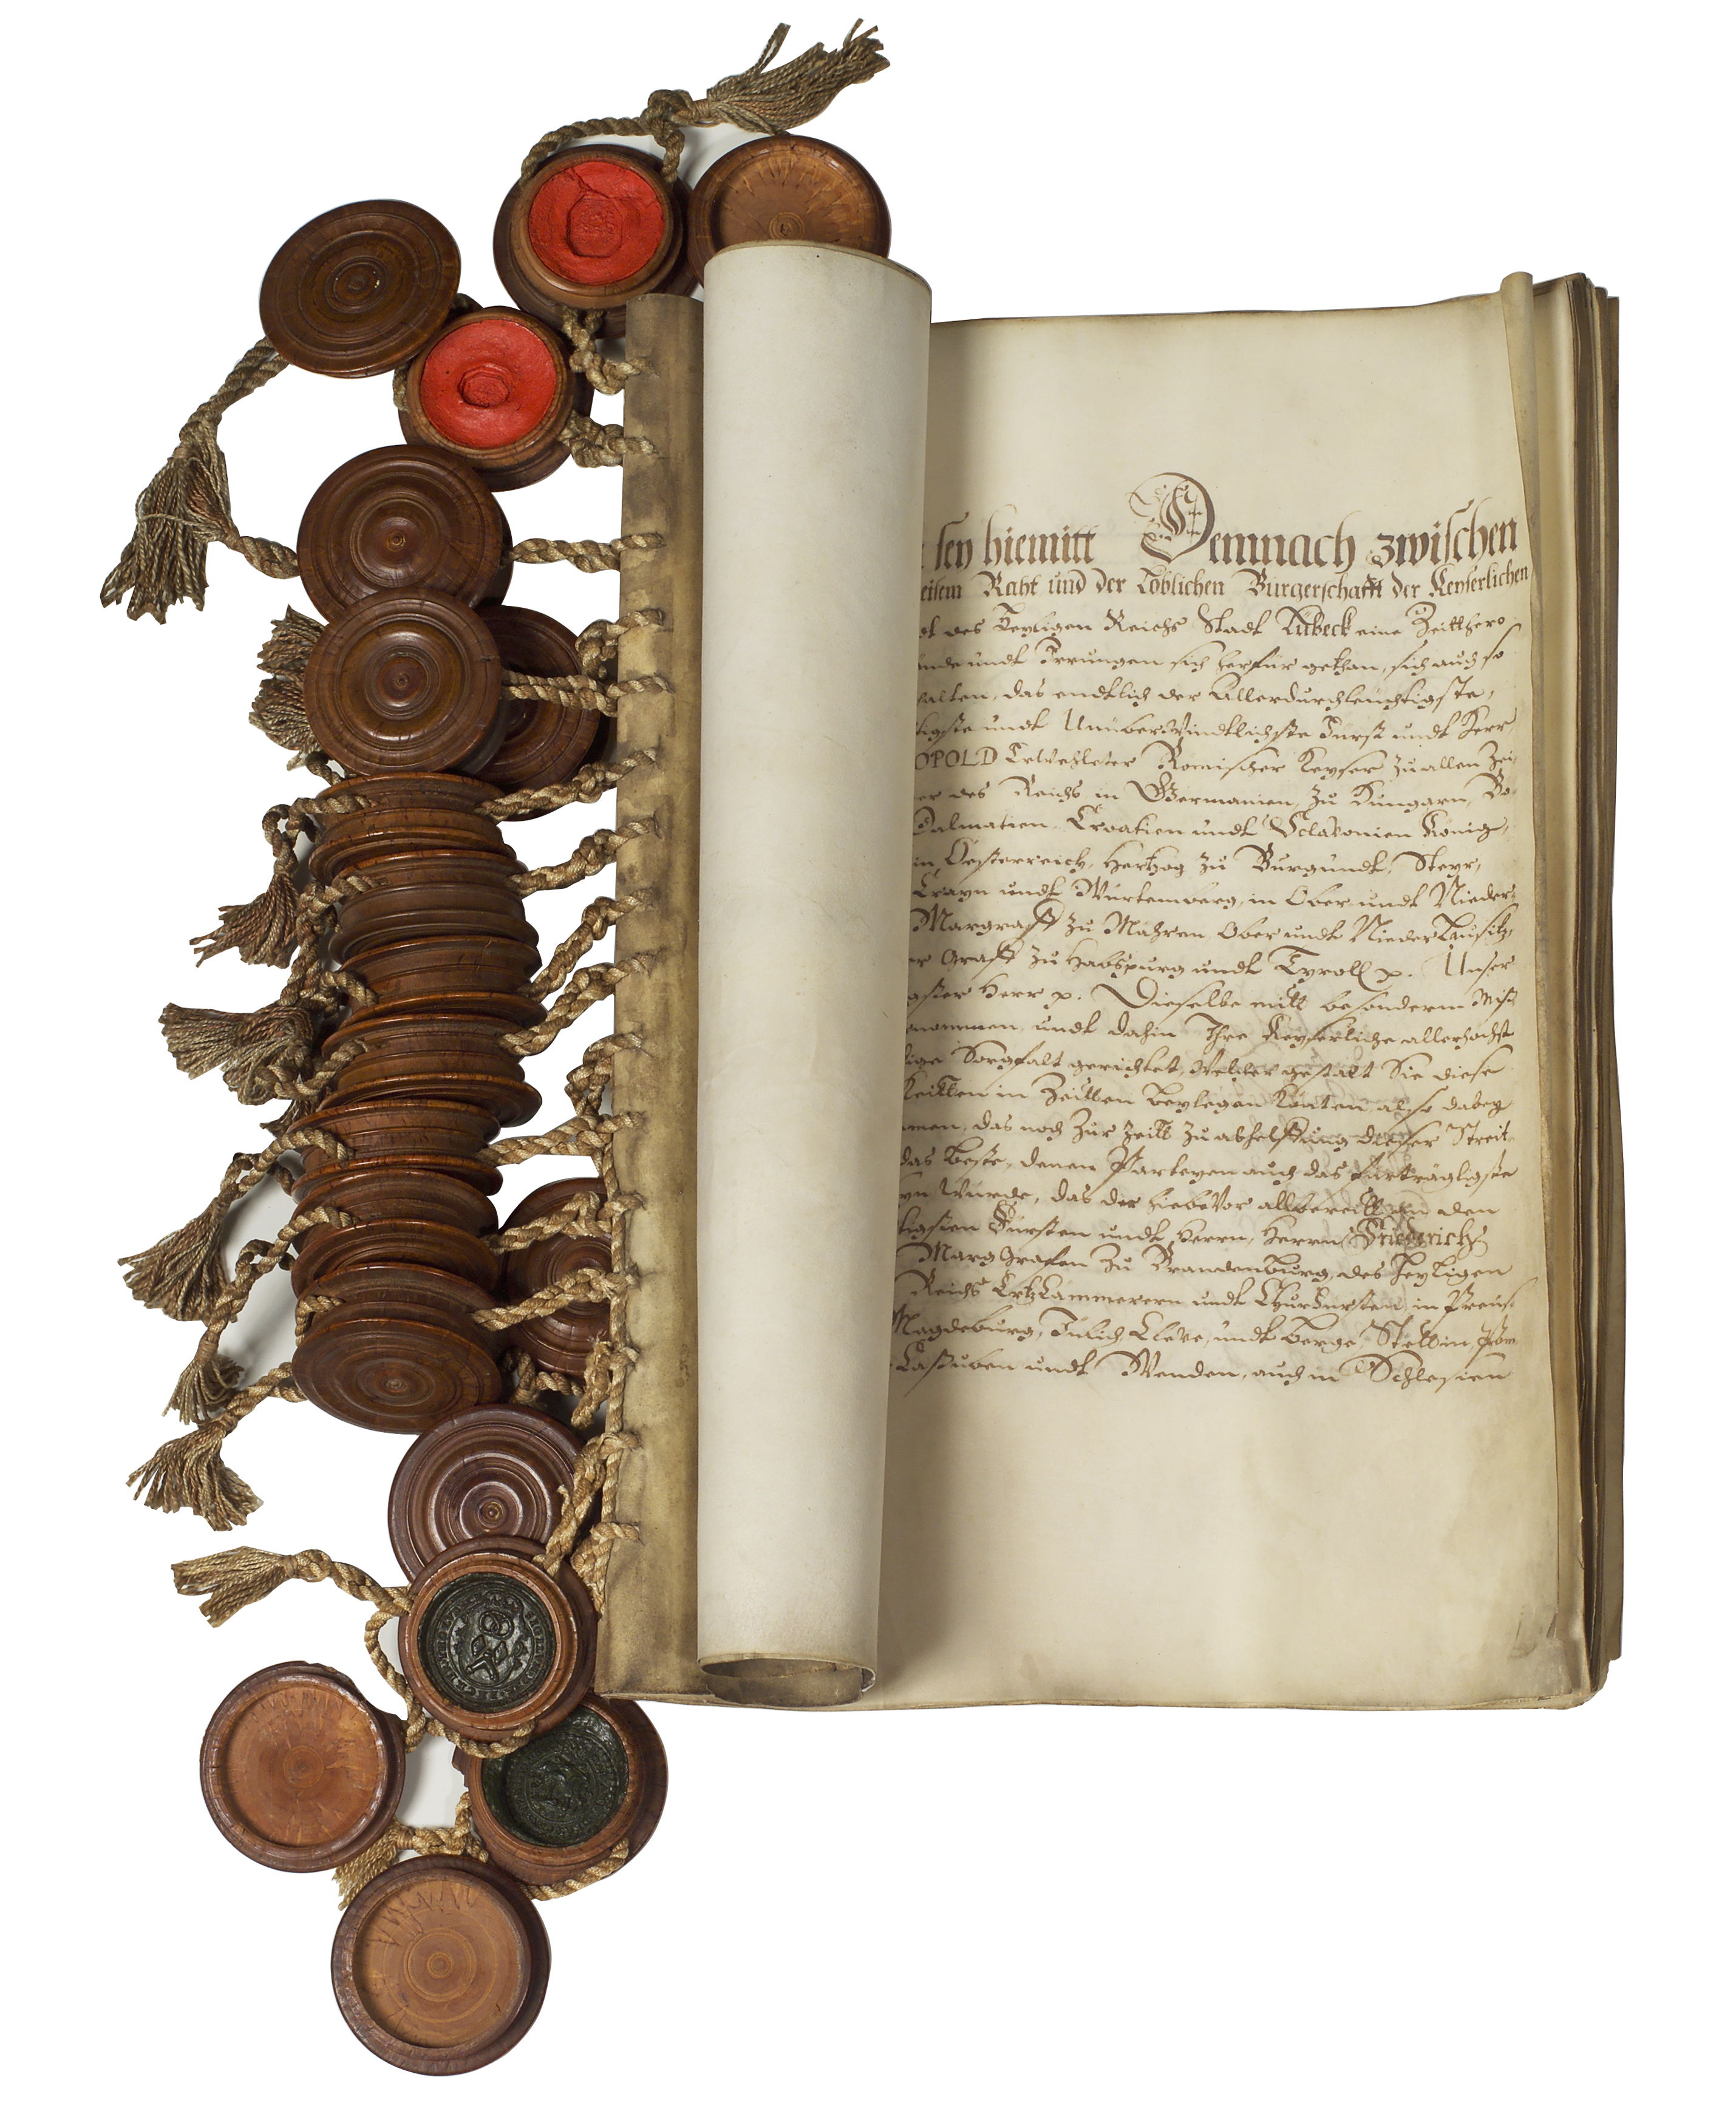 sey hiemitt Demnach zwischen
Raht und der Löblichen Bürgerschafft der Keyserlichen
des Heyligen Reichs Stadt Lübeck eine Zeitthero
undt Irrungen sich herfür gethan, sich auch so
das endtlich der Allerdurchleuchtigste,
undt Unüberwindtlichste Fürst undt Herr
OPOLD Erwehlter Römischer Keyser zu allen Zei
des Reichs in Germanien, zu Hungarn, Bö
Dalmatien, Croatien undt Sclavonien König,
in Oesterreich, Hertzog zu Burgundt, Steyr,
Crayn undt Würtemberg, in Ober undt Nieder
Marggraff zu Mähren, Ober undt Nieder Lausitz,
Graff zu Habspurg undt Tyroll p. Unser
Herr p. Dieselbe mitt besonderm Miß
undt dahin Ihre Keyserliche allerhöchst
Sorgfalt gerichtet, welcher gestalt Sie diese
in Zeitten beylegen also dabey
das noch zur Zeitt zu abhelffung dieser Streit
das beste, denen Parteyen auch das fürträglichste
würde, das der hiebevor allbereitt an den
Fürsten undt Herrn, Herrn Friederich
MargGrafen zu Brandenburg, des Heyligen
Reichs ErtzCammerern undt ChurFürsten, in Preuß
Magdeburg, Jülich, Cleve, undt Berge, Stettin, Pom
Caßuben undt Wenden, auch in Schlesien